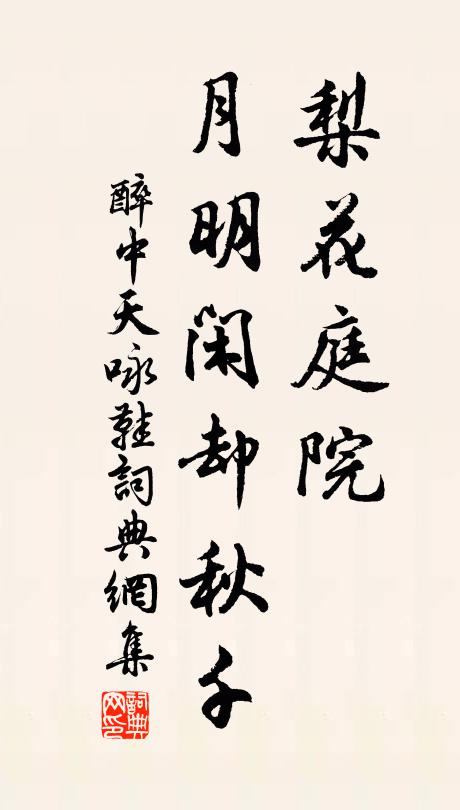 梨花庭院
月明閑却秋千
醉中天咏鞋詞典網集
詞典
网印